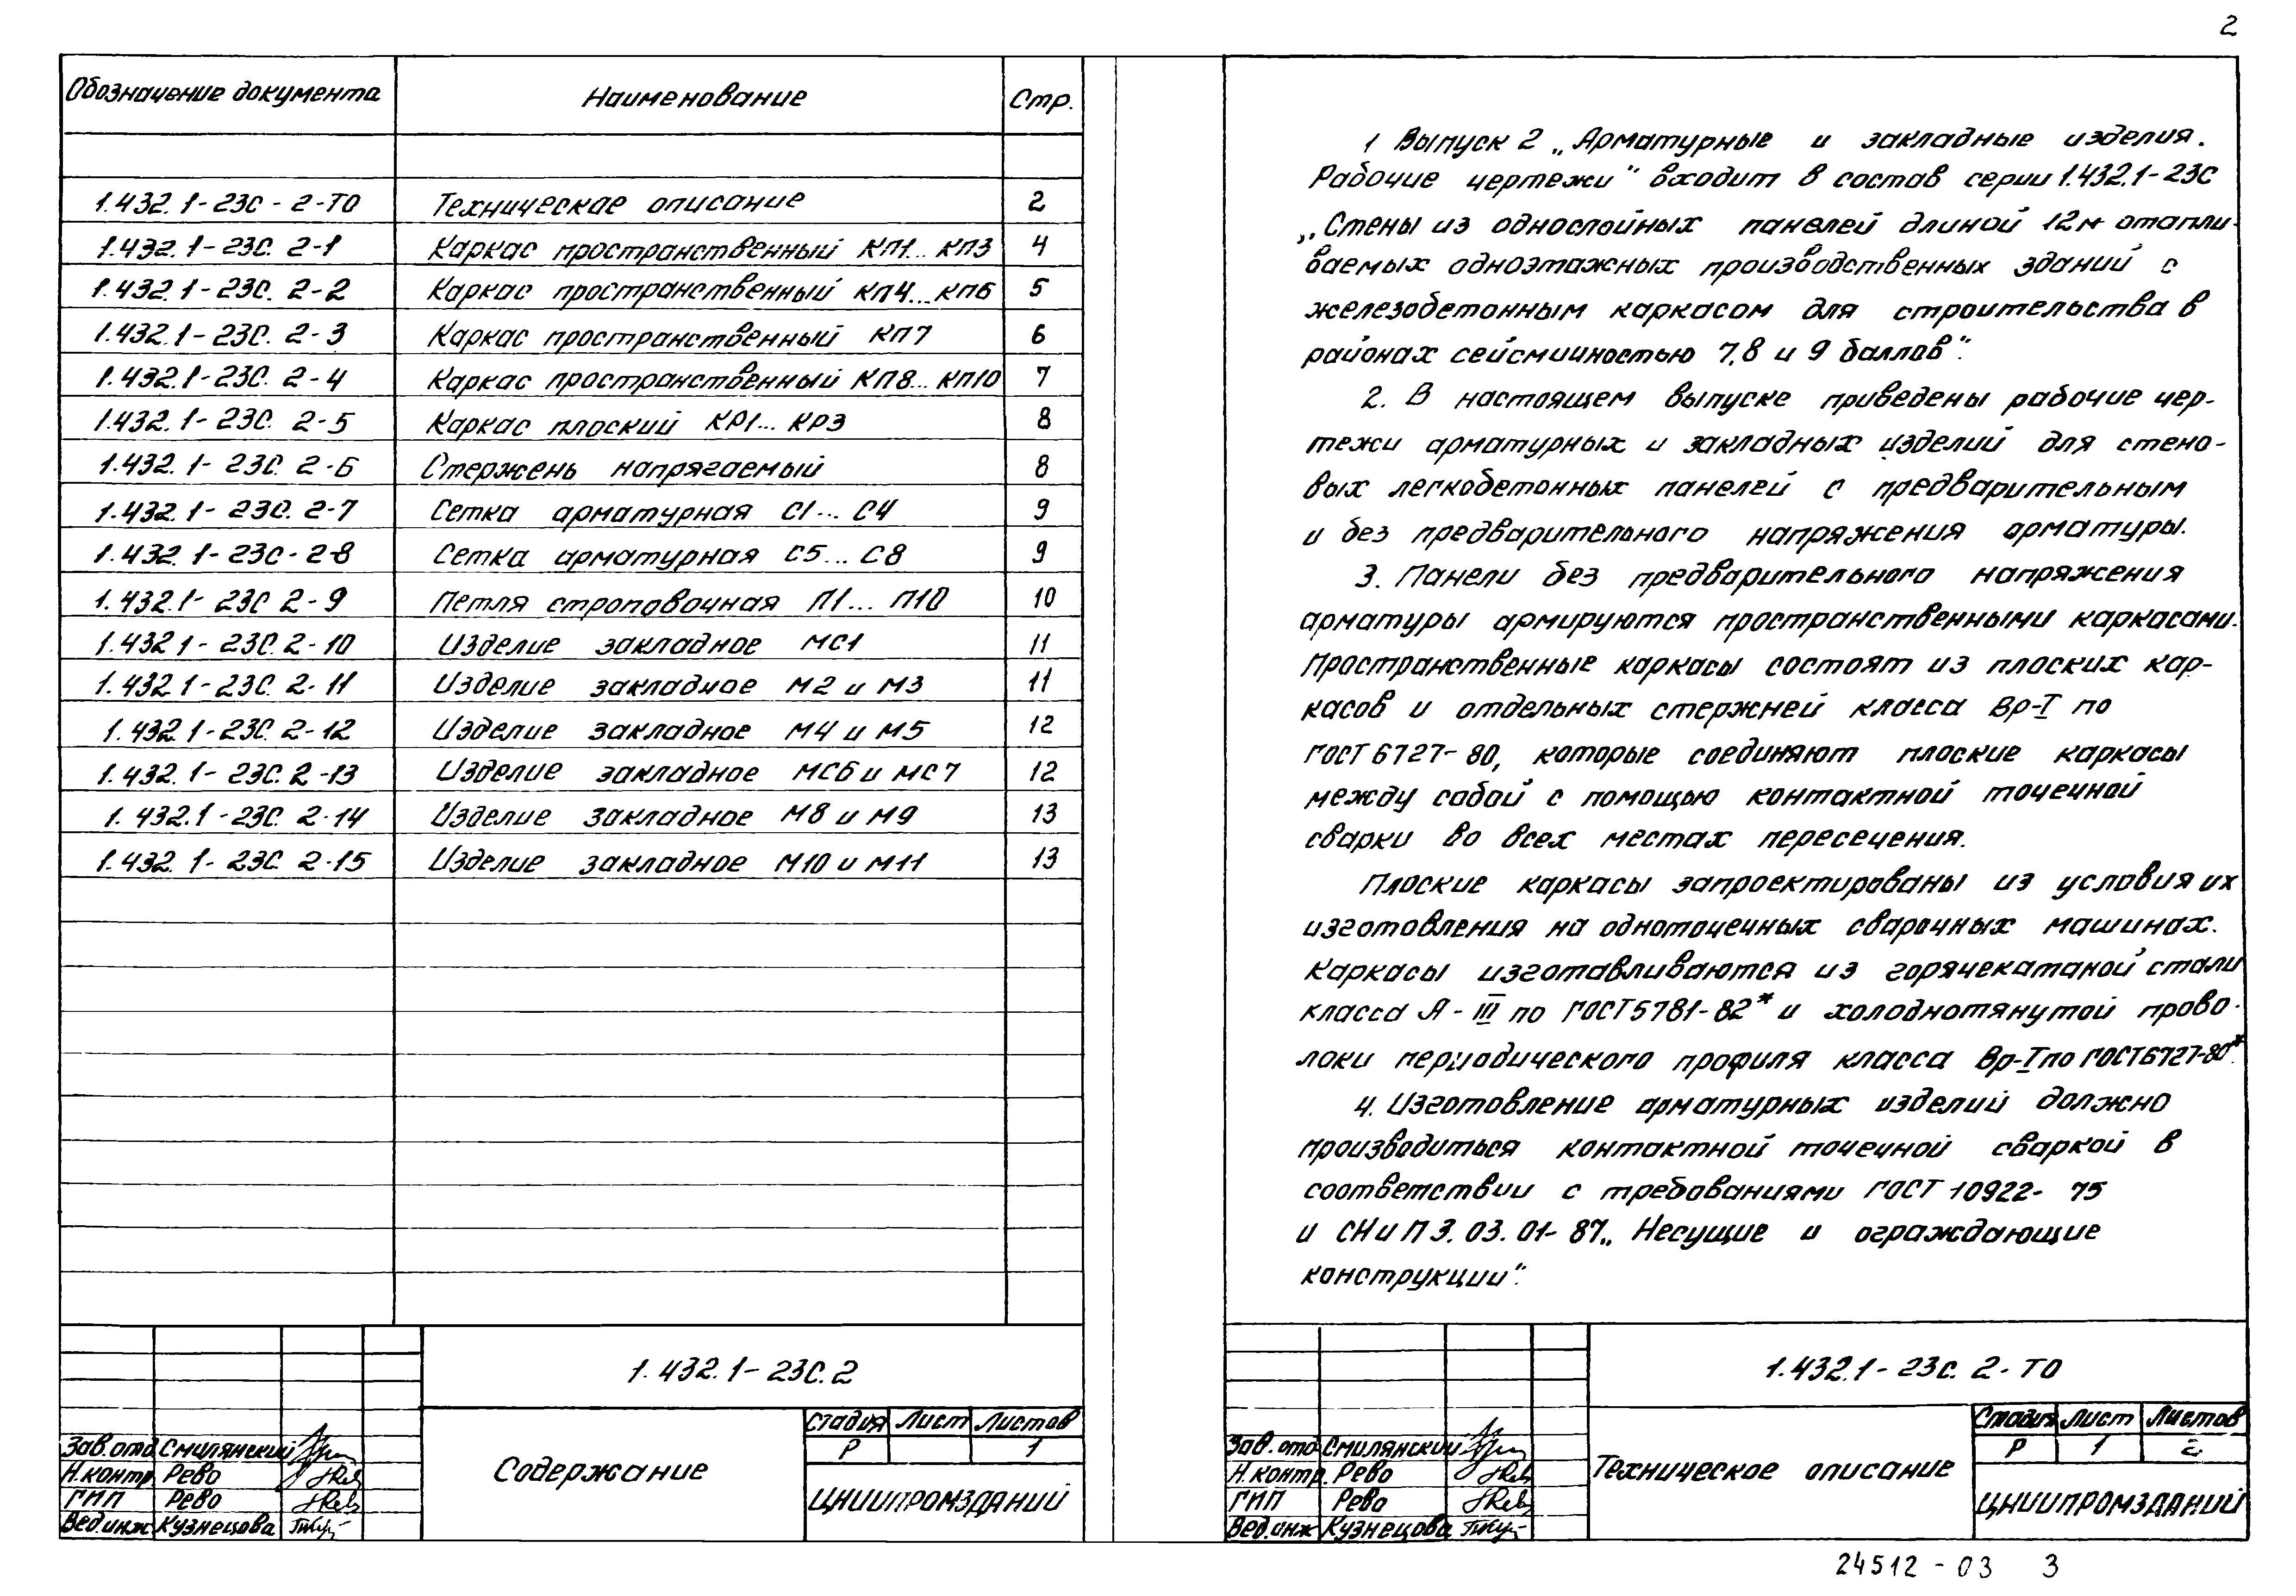 2
Обозначение документа Наименование Стр.
1.432.1-23С-2-ТО Техническое описание 2
1.432.1-23С.2-1 Каркас пространственный КП1...КП3 4
1.432.1-23С.2-2 Каркас пространственный КП4...КП6 5
1.432.1-23С.2-3 Каркас пространственный КП7 6
1.432.1-23С.2-4 Каркас пространственный КП8...КП10 7
1.432.1-23С.2-5 Каркас плоский КР1...КР3 8
1.432.1-23С.2-6 Стержень напрягаемый 8
1.432.1-23С.2-7 Сетка арматурная С1...С4 9
1.432.1-23С-2-8 Сетка арматурная С5...С8 9
1.432.1-23С 2-9 Петля строповочная П1...П10 10
1.432 1-23С.2-10 Изделие закладное МС1 11
1.432 1-23С.2-11 Изделие закладное М2 и М3 11
1.432 1-23С.2-12 Изделие закладное М4 и М5 12
1.432.1-23С.2-13 Изделие закладное МС6 и МС7 12
1.432.1-23С.2-14 Изделие закладное М8 и М9 13
1.432.1-23С 2-15 Изделие закладное М10 и М11 13
1.432.1-23С.2
Стадия Лист Листов
Р 1
Содержание
ЦНИИПРОМЗДАНИЙ
Зав.отд Смилянский
Н.контр. Рево
ГИП Рево
Вед.инж Кузнецова
1 Выпуск 2 „Арматурные и закладные изделия.
Рабочие чертежи" входит в состав серии 1.432.1-23С
„Стены из однослойных панелей длиной 12м отапли-
ваемых одноэтажных производственных зданий с
железобетонным каркасом для строительства в
районах сейсмичностью 7,8 и 9 баллов".
2. В настоящем выпуске приведены рабочие чер-
тежи арматурных и закладных изделий для стено-
вых легкобетонных панелей с предварительным
и без предварительного напряжения арматуры.
3. Панели без предварительного напряжения
арматуры армируются пространственными каркасами.
Пространственные каркасы состоят из плоских кар-
касов и отдельных стержней класса Вр-I по
ГОСТ 6727-80, которые соединяют плоские каркасы
между собой с помощью контактной точечной
сварки во всех местах пересечения.
Плоские каркасы запроектированы из условия их
изготовления на одноточечных сварочных машинах.
Каркасы изготавливаются из горячекатаной стали
класса А-III по ГОСТ 5781-82* и холоднотянутой прово-
локи периодического профиля класса Вр-I по ГОСТ 6727-80*.
4. Изготовление арматурных изделий должно
производиться контактной точечной сваркой в
соответствии с требованиями ГОСТ 10922-75
и СНиП 3.03.01-87 „Несущие и ограждающие
конструкции".
1.432.1-23С.2-ТО
Стадия Лист Листов
Р 1 2
Техническое описание
ЦНИИПРОМЗДАНИЙ
Зав.отд Смилянский
Н.контр. Рево
ГИП Рево
Вед.инж Кузнецова
24512-03 3